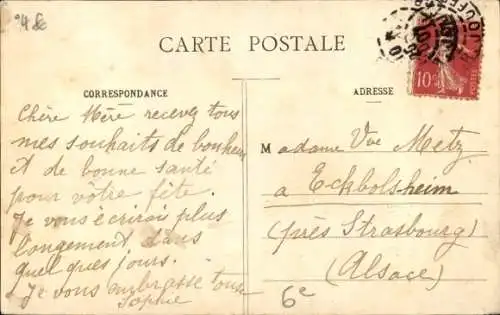 94 8c
CARTE POSTALE
CORRESPONDANCE
Chère Mère recevez tous
mes souhaits de bonheur
et de bonne santé
pour vôtre fête.
Je vous écrirais plus
longement dans
quel ques jours.
Je vous embrasse tous
Sophie
ADRESSE
10
POSTES
Madame Vve Metz
a Eckbolsheim
(près Strasbourg)
(Alsace)
6e